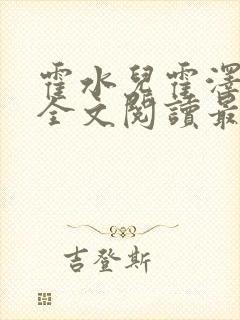 霍水兒霍澤
全文閱讀最
吉登斯